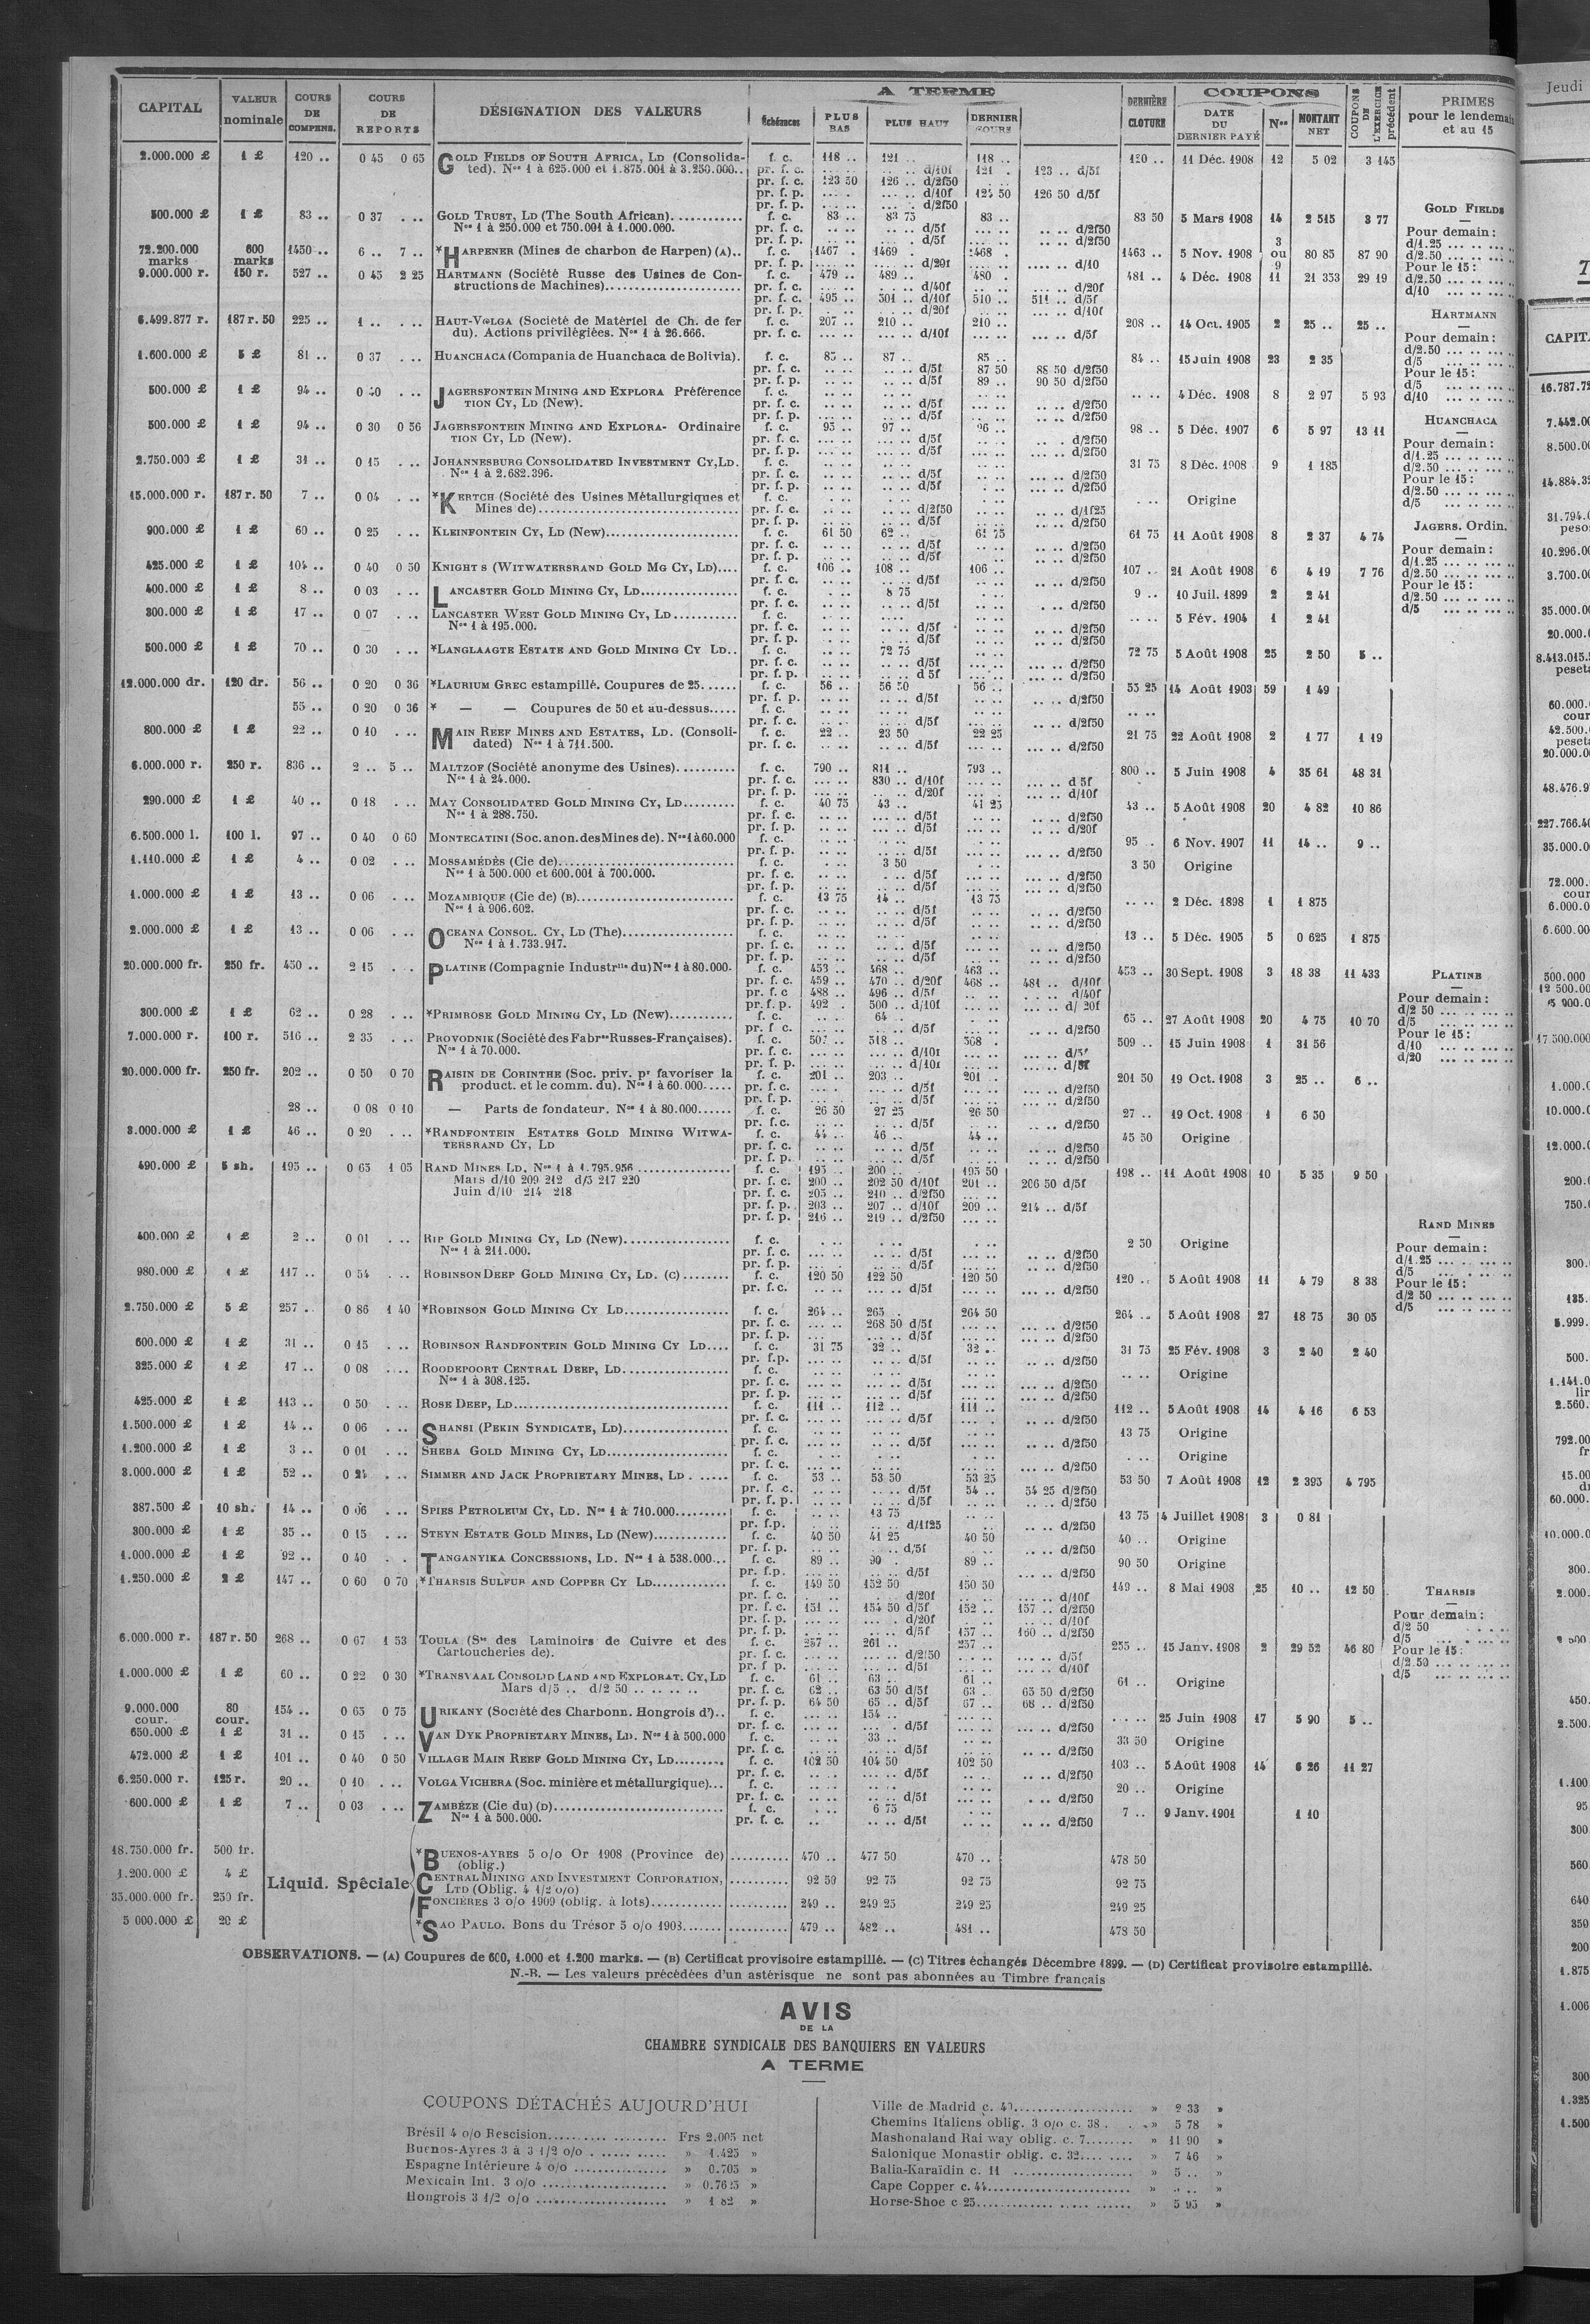 CAPITAL VALEUR nominale COURS DE COMPENS. COURS DE REPORTS DÉSIGNATION DES VALEURS A TERME Échéances PLUS BAS PLUS HAUT DERNIER COURS DERNIÈRE CLOTURE COUPONS DATE DU DERNIER PAYÉ Nos MONTANT NET COUPONS DE L'EXERCICE précédent PRIMES pour le lendemain et au 15
2.000.000 £ 1 £ 120 .. 0 45 0 65 GOLD FIELDS OF SOUTH AFRICA, LD (Consolida- f. c. 118 .. 121 .. 118 .. 120 .. 11 Déc. 1908 12 5 02 3 145
ted). Nos 1 à 625.000 et 1.875.001 à 3.250.000.. pr. f. c. d/10f 121 . 123 .. d/5f
pr. f. c. 123 50 126 .. d/2f50
pr. f. p. d/10f 125 50 126 50 d/5f
pr. f. p. d/2f50
500.000 £ 1 £ 83 .. 0 37 GOLD TRUST, LD (The South African) f. c. 83 .. 83 75 83 .. 83 50 5 Mars 1908 14 2 515 3 77
Nos 1 à 250.000 et 750.001 à 1.000.000. pr. f. c. d/5f d/2f50
pr. f. p. d/5f d/2f50
72.200.000 marks 600 marks 1450 .. 6 .. 7 .. *HARPENER (Mines de charbon de Harpen) (A).. f. c. 1467 . 1469 . 1468 . 1463 .. 5 Nov. 1908 3 ou 9 80 85 87 90
pr. f. p. d/20f d/10
9.000.000 r. 150 r. 527 .. 0 45 2 25 HARTMANN (Société Russe des Usines de Con- f. c. 479 .. 489 .. 480 . 481 .. 4 Déc. 1908 11 21 353 29 19
structions de Machines) pr. f. c. d/40f d/20f
pr. f. c. 495 .. 501 .. d/10f 510 .. 511 .. d/5f
pr. f. p. d/20f d/10f
6.499.877 r. 187 r. 50 225 .. 1 .. HAUT-VOLGA (Société de Matériel de Ch. de fer f. c. 207 .. 210 .. 210 .. 208 .. 14 Oct. 1905 2 25 .. 25 ..
du). Actions privilégiées. Nos 1 à 26.666. pr. f. c. d/10f d/5f
1.600.000 £ 5 £ 81 .. 0 37 HUANCHACA (Compania de Huanchaca de Bolivia). f. c. 85 .. 87 .. 85 .. 84 .. 15 Juin 1908 23 2 35
pr. f. c. d/5f 87 50 88 50 d/2f50
pr. f. p. d/5f 89 .. 90 50 d/2f50
500.000 £ 1 £ 94 .. JAGERSFONTEIN MINING AND EXPLORA Préférence f. c. 4 Déc. 1908 8 2 97 5 93
TION CY, LD (New). pr. f. c. d/5f d/2f50
pr. f. p. d/5f d/2f50
500.000 £ 1 £ 94 .. 0 30 0 56 JAGERSFONTEIN MINING AND EXPLORA- Ordinaire f. c. 95 .. 97 .. 96 .. 98 .. 5 Déc. 1907 6 5 97 13 11
TION CY, LD (New). pr. f. c. d/5f d/2f50
pr. f. p. d/5f d/2f50
2.750.000 £ 1 £ 31 .. 0 15 JOHANNESBURG CONSOLIDATED INVESTMENT CY, LD. f. c. 31 75 8 Déc. 1908 9 1 185
Nos 1 à 2.682.396. pr. f. c. d/5f d/2f50
pr. f. p. d/5f d/2f50
15.000.000 r. 187 r. 50 7 .. 0 04 *KERTCH (Société des Usines Métallurgiques et f. c. Origine
Mines de) pr. f. c. d/2f50 d/1f25
pr. f. p. d/5f d/2f50
900.000 £ 1 £ 60 .. 0 25 KLEINFONTEIN CY, LD (New) f. c. 61 50 62 .. 61 75 61 75 11 Août 1908 8 2 37 4 74
pr. f. c. d/5f d/2f50
pr. f. p. d/5f d/2f50
425.000 £ 1 £ 104 .. 0 40 0 50 KNIGHT S (WITWATERSRAND GOLD MG CY, LD).... f. c. 106 .. 108 .. 106 .. 107 .. 21 Août 1908 6 4 19 7 76
pr. f. c. d/5f d/2f50
400.000 £ 1 £ 8 .. 0 03 LANCASTER GOLD MINING CY, LD f. c. 8 75 9 .. 10 Juil. 1899 2 2 41
pr. f. c. d/5f d/2f50
300.000 £ 1 £ 17 .. 0 07 LANCASTER WEST GOLD MINING CY, LD f. c. 5 Fév. 1904 1 2 41
Nos 1 à 195.000. pr. f. c. d/5f d/2f50
pr. f. p. d/5f d/2f50
500.000 £ 1 £ 70 .. 0 30 *LANGLAAGTE ESTATE AND GOLD MINING CY LD.. f. c. 72 75 72 75 5 Août 1908 25 2 50 5 ..
pr. f. c. d/5f d/2f50
pr. f. p. d 5f d/2f50
12.000.000 dr. 120 dr. 56 .. 0 20 0 36 *LAURIUM GREC estampillé. Coupures de 25. f. c. 56 .. 56 50 56 .. 55 25 14 Août 1903 59 1 49
pr. f. p. d/5f d/2f50
55 .. 0 20 0 36 * — — Coupures de 50 et au-dessus..... f. c.
pr. f. c. d/5f d/2f50
800.000 £ 1 £ 22 .. 0 10 MAIN REEF MINES AND ESTATES, LD. (Consoli- f. c. 22 .. 23 50 22 25 21 75 22 Août 1908 2 1 77 1 19
dated) Nos 1 à 711.500. pr. f. c. d/5f d/2f50
6.000.000 r. 250 r. 836 .. 2 .. 5 .. MALTZOF (Société anonyme des Usines) f. c. 790 .. 811 .. 793 .. 800 .. 5 Juin 1908 4 35 61 48 31
Nos 1 à 24.000. pr. f. c. 830 .. d/10f d 5f
pr. f. p. d/20f d/10f
290.000 £ 1 £ 40 .. 0 18 MAY CONSOLIDATED GOLD MINING CY, LD f. c. 40 75 43 .. 41 25 43 .. 5 Août 1908 20 4 82 10 86
Nos 1 à 288.750. pr. f. c. d/5f d/2f50
pr. f. p. d/5f d/20f
6.500.000 l. 100 l. 97 .. 0 40 0 60 MONTECATINI (Soc. anon. des Mines de). Nos 1 à 60.000 f. c. 95 .. 6 Nov. 1907 11 14 .. 9 ..
pr. f. p. d/5f d/2f50
1.110.000 £ 1 £ 4 .. 0 02 MOSSAMÉDÈS (Cie de) f. c. 3 50 3 50 Origine
Nos 1 à 500.000 et 600.001 à 700.000. pr. f. c. d/5f d/2f50
pr. f. p. d/5f d/2f50
1.000.000 £ 1 £ 13 .. 0 06 MOZAMBIQUE (Cie de) (B) f. c. 13 75 14 .. 13 75 2 Déc. 1898 1 1 875
Nos 1 à 906.602. pr. f. c. d/5f d/2f50
pr. f. p. d/5f d/2f50
2.000.000 £ 1 £ 13 .. 0 06 OCEANA CONSOL. CY, LD (The) f. c. 13 .. 5 Déc. 1905 5 0 625 1 875
Nos 1 à 1.733.917. pr. f. c. d/5f d/2f50
pr. f. p. d/5f d/2f50
20.000.000 fr. 250 fr. 450 .. 2 15 PLATINE (Compagnie Industrlle du) Nos 1 à 80.000. f. c. 453 .. 468 .. 463 .. 453 .. 30 Sept. 1908 3 18 38 11 433
pr. f. c. 459 .. 470 .. d/20f 468 .. 481 .. d/10f
pr. f. c 488 .. 496 .. d/5f d/40f
pr. f. p. 492 . 500 .. d/10f d/ 20f
300.000 £ 1 £ 62 .. 0 28 *PRIMROSE GOLD MINING CY, LD (New) f. c. 64 .. 65 .. 27 Août 1908 20 4 75 10 70
pr. f. c. d/5f d/2f50
7.000.000 r. 100 r. 516 .. 2 35 PROVODNIK (Société des Fabres Russes-Françaises). f. c. 518 .. 508 .. 509 .. 15 Juin 1908 1 31 56
Nos 1 à 70.000. pr. f. c. d/10f d/5f
pr. f. p. d/10f d/5f
20.000.000 fr. 250 fr. 202 .. 0 50 0 70 RAISIN DE CORINTHE (Soc. priv. pr favoriser la f. c. 201 .. 203 .. 201 .. 201 50 19 Oct. 1908 3 25 .. 6 ..
product. et le comm. du). Nos 1 à 60.000..... pr. f. c. d/5f d/2f50
pr. f. p. d/5f d/2f50
28 .. 0 08 0 10 — Parts de fondateur. Nos 1 à 80.000...... f. c. 26 50 27 25 26 50 27 .. 19 Oct. 1908 1 6 50
pr. f. c. d/5f d/2f50
3.000.000 £ 1 £ 46 .. 0 20 *RANDFONTEIN ESTATES GOLD MINING WITWA- f. c. 44 .. 46 .. 44 .. 45 50 Origine
TERSRAND CY, LD pr. f. c. d/5f d/2f50
pr. f. p. d/5f d/2f50
490.000 £ 5 sh. 195 .. 0 65 1 05 RAND MINES LD. Nos 1 à 1.795.956 f. c. 195 .. 200 .. 195 50 198 .. 11 Août 1908 10 5 35 9 50
Mars d/10 209 212 d/5 217 220 pr. f. c. 200 .. 202 50 d/10f 201 .. 206 50 d/5f
Juin d/10 214 218 pr. f. c. 205 .. 210 .. d/2f50
pr. f. p. 203 .. 207 .. d/10f 209 .. 214 .. d/5f
pr. f. p. 216 .. 219 .. d/2f50
400.000 £ 1 £ 2 .. 0 01 RIP GOLD MINING CY, LD (New) f. c. 2 50 Origine
Nos 1 à 211.000. pr. f. c. d/5f d/2f50
pr. f. p. d/5f d/2f50
980.000 £ 1 £ 117 .. 0 54 ROBINSON DEEP GOLD MINING CY, LD. (C) f. c. 120 50 122 50 120 50 120 .. 5 Août 1908 11 4 79 8 38
pr. f.c. d/5f d/2f50
2.750.000 £ 5 £ 257 . 0 86 1 40 *ROBINSON GOLD MINING CY LD f. c. 264 .. 265 .. 264 50 264 .. 5 Août 1908 27 18 75 30 05
pr. f. c. 268 50 d/5f d/2f50
pr. f. p. d/5f d/2f50
600.000 £ 1 £ 31 .. 0 15 ROBINSON RANDFONTEIN GOLD MINING CY LD.... f. c. 31 75 32 .. 32 .. 31 75 25 Fév. 1908 3 2 40 2 40
pr. f.p. d/5f d/2f50
325.000 £ 1 £ 17 .. 0 08 ROODEPOORT CENTRAL DEEP, LD f. c. Origine
Nos 1 à 308.125. pr. f. c. d/5f d/2f50
pr. f. p. d/5f d/2f50
425.000 £ 1 £ 113 .. 0 50 ROSE DEEP, LD f. c. 111 .. 112 .. 111 .. 112 .. 5 Août 1908 14 4 16 6 53
pr. f. c. d/5f d/2f50
1.500.000 £ 1 £ 14 .. 0 06 SHANSI (PEKIN SYNDICATE, LD) f. c. 13 75 Origine
pr. f. c. d/5f d/2f50
1.200.000 £ 1 £ 3 .. 0 01 SHEBA GOLD MINING CY, LD f. c. Origine
pr. f. c. d/2f50
3.000.000 £ 1 £ 52 .. SIMMER AND JACK PROPRIETARY MINES, LD f. c. 53 .. 53 50 53 25 53 50 7 Août 1908 12 2 395 4 795
pr. f. c. d/5f 54 .. 54 25 d/2f50
pr. f. p. d/5f d/2f50
387.500 £ 10 sh. 14 .. 0 06 SPIES PETROLEUM CY, LD. Nos 1 à 710.000 f. c. 13 75 13 75 4 Juillet 1908 3 0 81
pr. f.p. d/1f25 d/2f50
300.000 £ 1 £ 35 .. 0 15 STEYN ESTATE GOLD MINES, LD (New) f. c. 40 50 41 25 40 50 40 .. Origine
pr. f. p. d/5f d/2f50
1.000.000 £ 1 £ 92 .. 0 40 TANGANYIKA CONCESSIONS, LD. Nos 1 à 538.000... f. c. 89 .. 90 . 89 .. 90 50 Origine
pr. f.p. d/5f d/2f50
1.250.000 £ 2 £ 147 .. 0 60 0 70 *THARSIS SULFUR AND COPPER CY LD f. c. 149 50 152 50 150 50 149 .. 8 Mai 1908 25 10 .. 12 50
pr. f. c. d/20f d/10f
pr. f. c. 151 .. 154 50 d/5f 152 .. 157 .. d/2f50
pr. f. p. d/20f d/10f
pr. f. p. d/5f 157 .. 160 .. d/2f50
6.000.000 r. 187 r. 50 268 .. 0 67 1 53 TOULA (Sté des Laminoirs de Cuivre et des f. c. 257 .. 261 .. 257 .. 255 .. 15 Janv. 1908 2 29 52 46 80
Cartoucheries de). pr. f. c. d/2f50 d/5f
pr. f p. d/5f d/10f
1.000.000 £ 1 £ 60 .. 0 22 0 30 *TRANSVAAL CONSOLID LAND AND EXPLORAT. CY, LD f. c. 61 .. 63 .. 61 .. 61 .. Origine
Mars d/5 .. d/2 50 .. pr. f. c. 62 .. 63 50 d/5f 63 .. 65 50 d/2f50
pr. f. p. 64 50 65 .. d/5f 67 .. 68 .. d/2f50
9.000.000 cour. 80 cour. 154 .. 0 65 0 75 URIKANY (Société des Charbonn. Hongrois d').. f. c. 154 .. 25 Juin 1908 17 5 90 5 ..
pr. f. c. d/5f d/2f50
650.000 £ 1 £ 31 .. 0 15 VAN DYK PROPRIETARY MINES, LD. Nos 1 à 500.000 f. c. 33 .. 33 50 Origine
pr. f. c. d/5f d/2f50
472.000 £ 1 £ 101 .. 0 40 0 50 VILLAGE MAIN REEF GOLD MINING CY, LD f. c. 102 50 104 50 102 50 103 .. 5 Août 1908 14 6 26 11 27
pr. f. c. d/5f d/2f50
6.250.000 r. 125 r. 20 .. 0 10 VOLGA VICHERA (Soc. minière et métallurgique)... f. c. 20 .. Origine
pr. f. c. d/5f d/2f50
600.000 £ 1 £ 7 .. 0 03 ZAMBÈZE (Cie du) (D) f. c. 6 75 7 .. 9 Janv. 1901 1 10
Nos 1 à 500.000. pr. f. c. d/5f d/2f50
Liquid. Spéciale
18.750.000 fr. 500 fr. *BUENOS-AYRES 5 o/o Or 1908 (Province de) 470 .. 477 50 470 .. 478 50
(oblig.)
1.200.000 £ 4 £ CENTRAL MINING AND INVESTMENT CORPORATION, 92 50 92 75 92 75 92 75
LTD (Oblig. 4 1/2 o/o)
35.000.000 fr. 250 fr. FONCIÈRES 3 o/o 1909 (oblig. à lots) 249 .. 249 25 249 25 249 25
5 000.000 £ 20 £ *SAO PAULO. Bons du Trésor 5 o/o 1908 479 .. 482 .. 481 .. 478 50
GOLD FIELDS
Pour demain :
d/1.25
d/2.50
Pour le 15 :
d/2.50
d/10
HARTMANN
Pour demain :
d/2.50
d/5
Pour le 15 :
d/5
d/10
HUANCHACA
Pour demain :
d/1.25
d/2.50
Pour le 15 :
d/2.50
d/5
JAGERS. Ordin.
Pour demain :
d/1.25
d/2.50
Pour le 15 :
d/2.50
d/5
PLATINE
Pour demain :
d/2 50
d/5
Pour le 15 :
d/10
d/20
RAND MINES
Pour demain :
d/1.25
d/5
Pour le 15 :
d/2 50
d/5
THARSIS
Pour demain :
d/2 50
d/5
Pour le 15 :
d/2.50
d/5
OBSERVATIONS. — (A) Coupures de 600, 1.000 et 1.200 marks. — (B) Certificat provisoire estampillé. — (C) Titres échangés Décembre 1899. — (D) Certificat provisoire estampillé.
N.-B. — Les valeurs précédées d'un astérisque ne sont pas abonnées au Timbre français
AVIS
DE LA
CHAMBRE SYNDICALE DES BANQUIERS EN VALEURS
A TERME
COUPONS DÉTACHÉS AUJOURD'HUI
Brésil 4 o/o Rescision Frs 2.005 net
Buenos-Ayres 3 à 3 1/2 o/o » 1.425 »
Espagne Intérieure 4 o/o » 0.705 »
Mexicain Int. 3 o/o » 0.7625 »
Hongrois 3 1/2 o/o » 1 82 »
Ville de Madrid c. » 2 33 »
Chemins Italiens oblig. 3 o/o c. 38 . » 5 78 »
Mashonaland Rai way oblig. c. 7 » 11 90 »
Salonique Monastir oblig. c. 32 » 7 46 »
Balia-Karaïdin c. 11 » 5 .. »
Cape Copper c. 44 » »
Horse-Shoe c 25 » 5 95 »
Jeudi
CAPIT